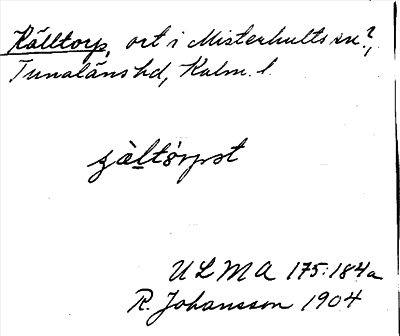 Källtorp, ort i Misterhults sn?,
Tunaläns hd, Kalm. l.
ULMA 175:184a
R. Johansson 1904